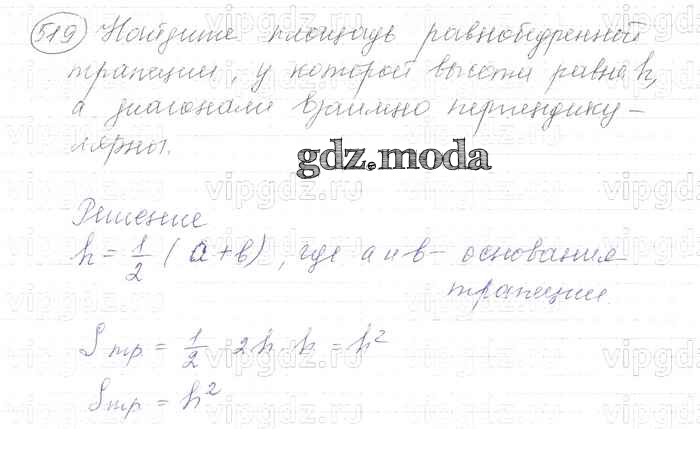 519 Найдите площадь равнобедренной
трапеции, у которой высота равна h,
а диагонали взаимно перпендику-
лярны.
gdz.moda
Решение
h = 1/2 (a + b), где a и b - основания
трапеции.
Sтр = 1/2 · 2h · h = h²
Sтр = h²